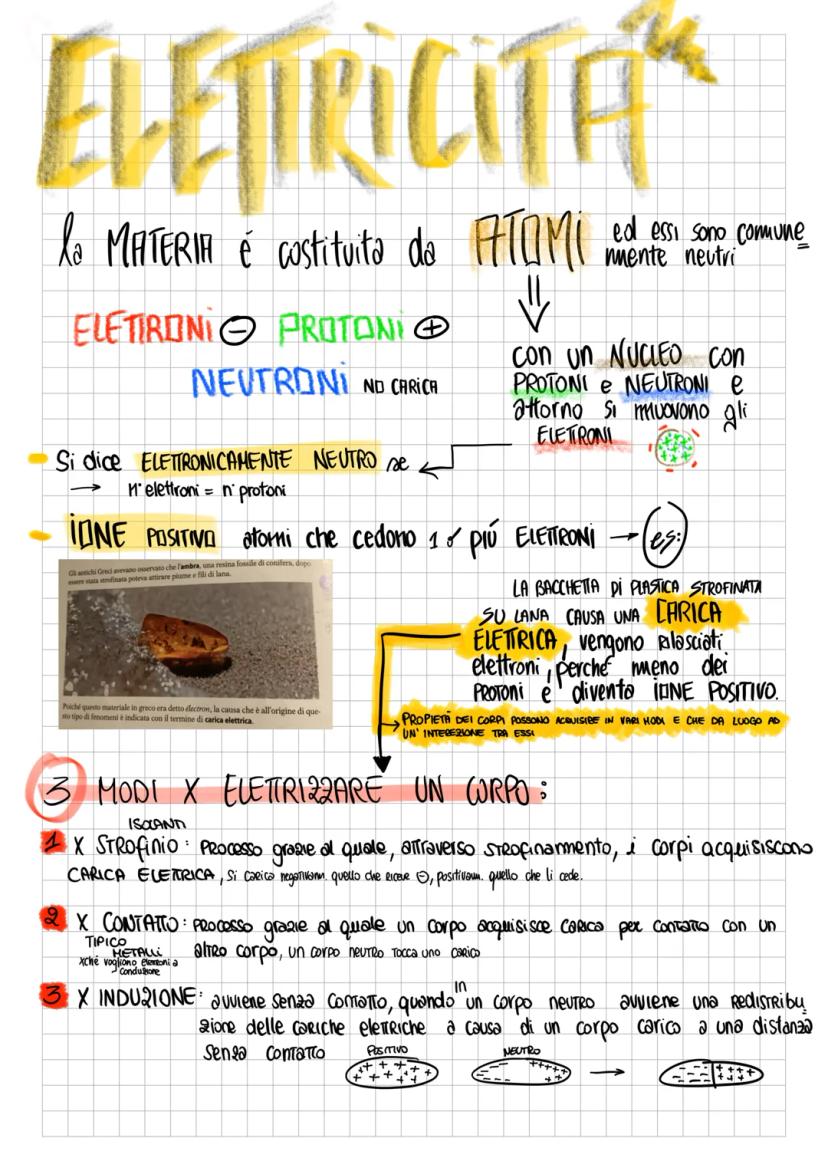 ELETTRICITA'
la MATERIA é costituita da ATOMI ed essi sono comune
mente neutri
ELETTRONI - PROTONI +
NEUTRONI NO CARICA
con un NUCLEO con
PROTONI e NEUTRONI e
attorno si muovono gli
ELETTRONI
Si dice ELETTRONICAMENTE NEUTRO se
→ n° elettroni = n° protoni
IONE POSITIVO atomi che cedono 1 o piú ELETTRONI → es:
Gli antichi Greci avevano osservato che l'ambra, una resina fossile di conifera, dopo
essere stata strofinata poteva attirare piume e fili di lana.
Poiché questo materiale in greco era detto electron, la causa che è all'origine di que-
sto tipo di fenomeni è indicata con il termine di carica elettrica.
LA BACCHETTA DI PLASTICA STROFINATA
SU LANA CAUSA UNA CARICA
ELETTRICA, vengono rilasciati
elettroni, perché meno dei
PROTONI e diventa IONE POSITIVO.
PROPIETÀ DEI CORPI POSSONO ACQUISIRE IN VARI MODI E CHE DA LUOGO AD
UN' INTEREZIONE TRA ESSI
3 MODI X ELETTRIZZARE UN CORPO:
ISOLANTI
1 X STROFINIO: PROCESSO grazie al quale, attraverso STROFINAMENTO, i corpi acquisiscono
CARICA ELETTRICA, Si carica negativam. quello che riceve -, positivam. quello che li cede.
2 X CONTATTO: PROCESSO grazie al quale un corpo acquisisce carica per contatto con un
altro corpo, un corpo neutro tocca uno carico
TIPICO
METALLI
xché vogliono elettroni a
conduzione
3 X INDUZIONE: avviene senza contatto, quando in un corpo neutro avviene una redistribu
zione delle cariche elettriche a causa di un corpo carico a una distanza
senza contatto
POSITIVO NEUTRO